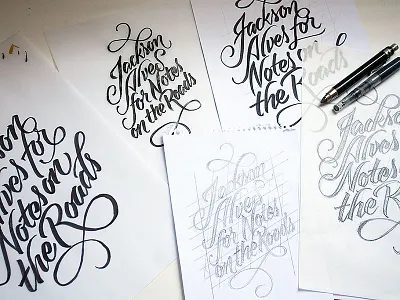 Jackson
Alves
for Notes
on the Roads
Jackson
Alves for
Notes on
the Roads
kson
Alves for
Notes on
the Roads
Jackson
Alves
for Notes
on the Roads
Jackson
Alves for
Notes on
the R